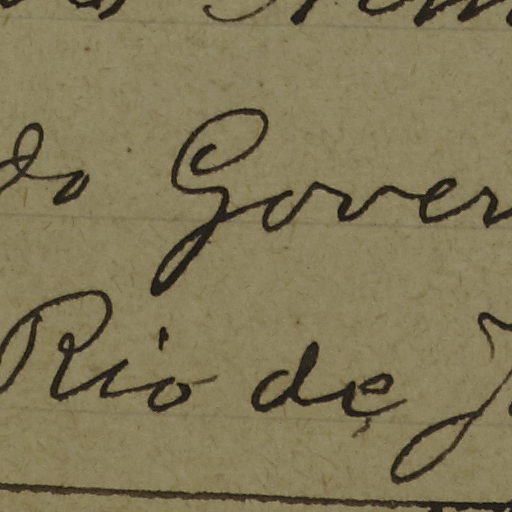 do Gover
Rio de J